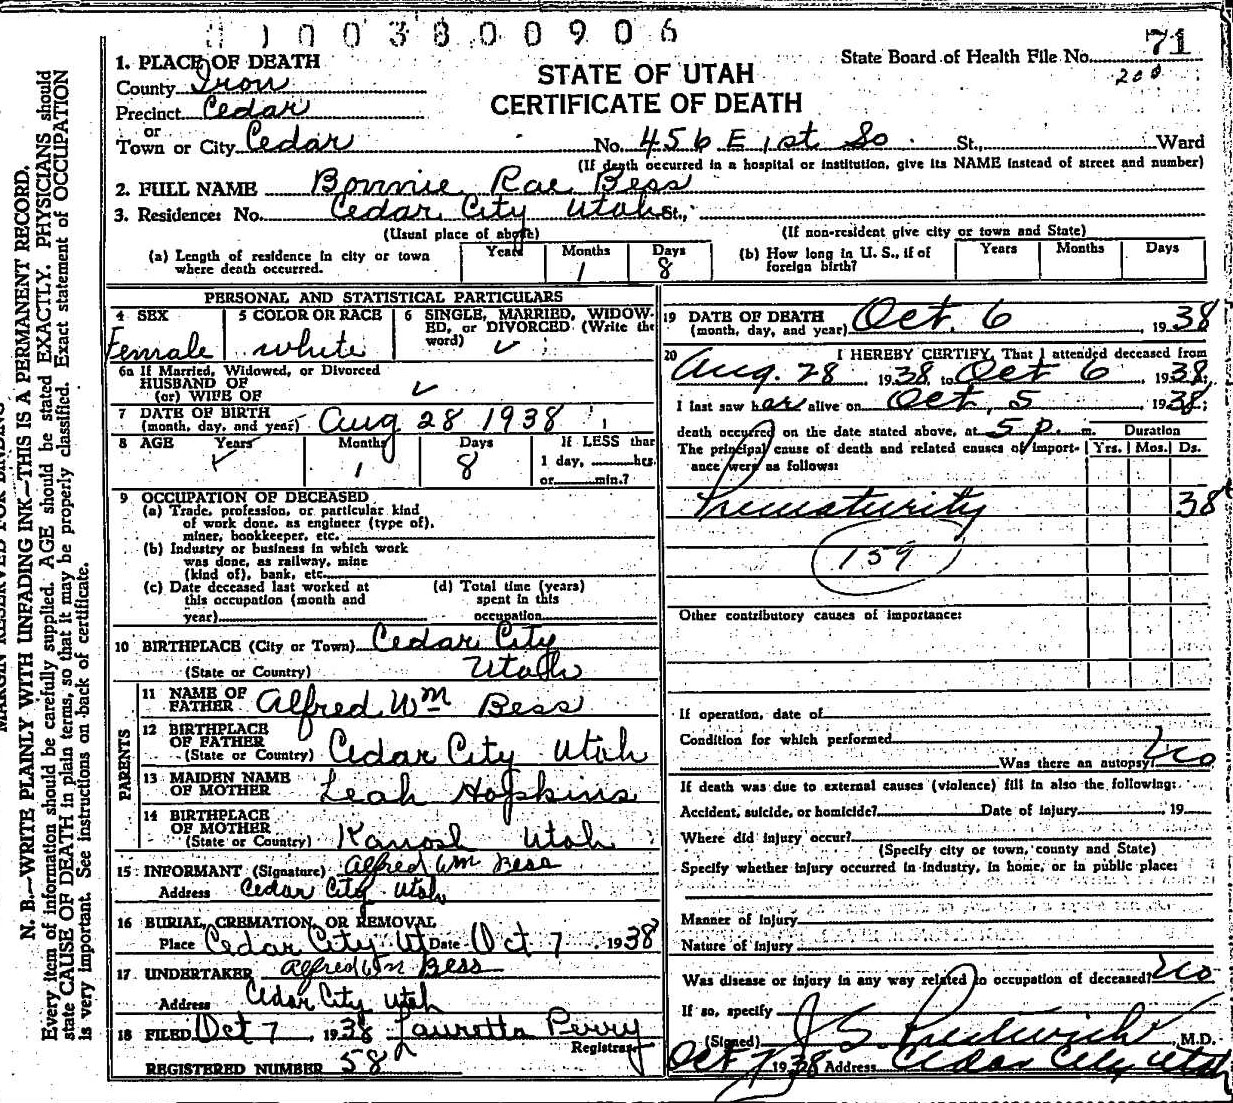 1003800906
71
State Board of Health File No.
200
STATE OF UTAH
CERTIFICATE OF DEATH
1. PLACE OF DEATH
County Iron
Precinct Cedar
or
Town or City Cedar No. 456 E 1st So. St., Ward
(If death occurred in a hospital or institution, give its NAME instead of street and number)
2. FULL NAME Bonnie Rae Bess
3. Residence: No. Cedar City Utah St.,
(Usual place of above) (If non-resident give city or town and State)
(a) Length of residence in city or town where death occurred. Years Months 1 Days 8
(b) How long in U. S., if of foreign birth? Years Months Days
PERSONAL AND STATISTICAL PARTICULARS
4 SEX Female
5 COLOR OR RACE white
6 SINGLE, MARRIED, WIDOWED, or DIVORCED (Write the word) ✓
6a If Married, Widowed, or Divorced
HUSBAND OF
(or) WIFE OF ✓
7 DATE OF BIRTH
(month, day, and year) Aug 28 1938
8 AGE Years ✓ Months 1 Days 8
If LESS than
1 day, hrs.
or min.?
9 OCCUPATION OF DECEASED
(a) Trade, profession, or particular kind
of work done, as engineer (type of),
miner, bookkeeper, etc.
(b) Industry or business in which work
was done, as railway, mine
(kind of), bank, etc.
(c) Date deceased last worked at
this occupation (month and
year)
(d) Total time (years)
spent in this
occupation
10 BIRTHPLACE (City or Town) Cedar City
(State or Country) Utah
PARENTS
11 NAME OF
FATHER Alfred Wm Bess
12 BIRTHPLACE
OF FATHER
(State or Country) Cedar City Utah
13 MAIDEN NAME
OF MOTHER Leah Hopkins
14 BIRTHPLACE
OF MOTHER
(State or Country) Kanosh Utah
15 INFORMANT (Signature) Alfred Wm Bess
Address Cedar City Utah
16 BURIAL, CREMATION, OR REMOVAL
Place Cedar City Ut Date Oct 7 1938
17 UNDERTAKER Alfred Wm Bess
Address Cedar City Utah
18 FILED Oct 7, 1938 Lauretta Perry
Registrar
REGISTERED NUMBER 58
19 DATE OF DEATH
(month, day, and year) Oct. 6, 1938
20 I HEREBY CERTIFY, That I attended deceased from
Aug. 28 1938, to Oct 6, 1938,
I last saw her alive on Oct, 5 1938;
death occurred on the date stated above, at 5 p. m. Duration
The principal cause of death and related causes of importance were as follows: Yrs. Mos. Ds.
Prematurity 38
159
Other contributory causes of importance:
If operation, date of
Condition for which performed
Was there an autopsy? no
If death was due to external causes (violence) fill in also the following:
Accident, suicide, or homicide? Date of injury 19
Where did injury occur?
(Specify city or town, county and State)
Specify whether injury occurred in industry, in home, or in public place:
Manner of Injury
Nature of Injury
Was disease or injury in any way related to occupation of deceased? no
If so, specify
(Signed) J. S. Prestwich M.D.
Oct 7 1938 Address Cedar City Utah
MARGIN RESERVED FOR BINDING
N. B.—WRITE PLAINLY WITH UNFADING INK—THIS IS A PERMANENT RECORD.
Every item of information should be carefully supplied. AGE should be stated EXACTLY. PHYSICIANS should
state CAUSE OF DEATH in plain terms, so that it may be properly classified. Exact statement of OCCUPATION
is very important. See instructions on back of certificate.